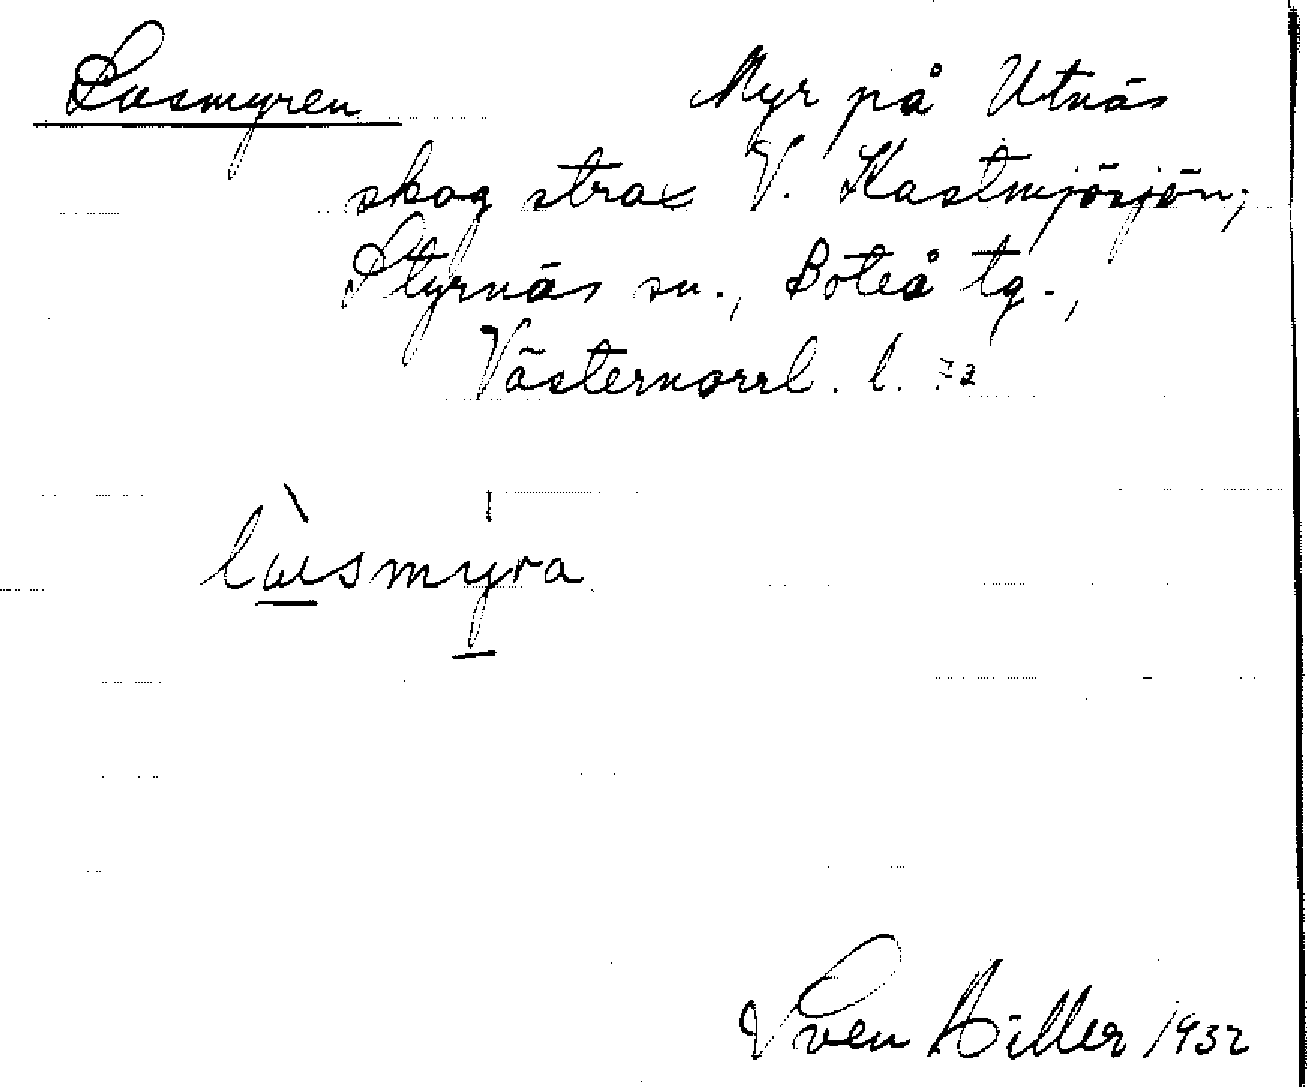 Lusmyren Myr på Utnäs
skog strax V. Kastmjösjön;
Styrnäs sn., Boteå tg.,
Västernorrl. l. 72
lùsmyra
Sven Hiller 1932